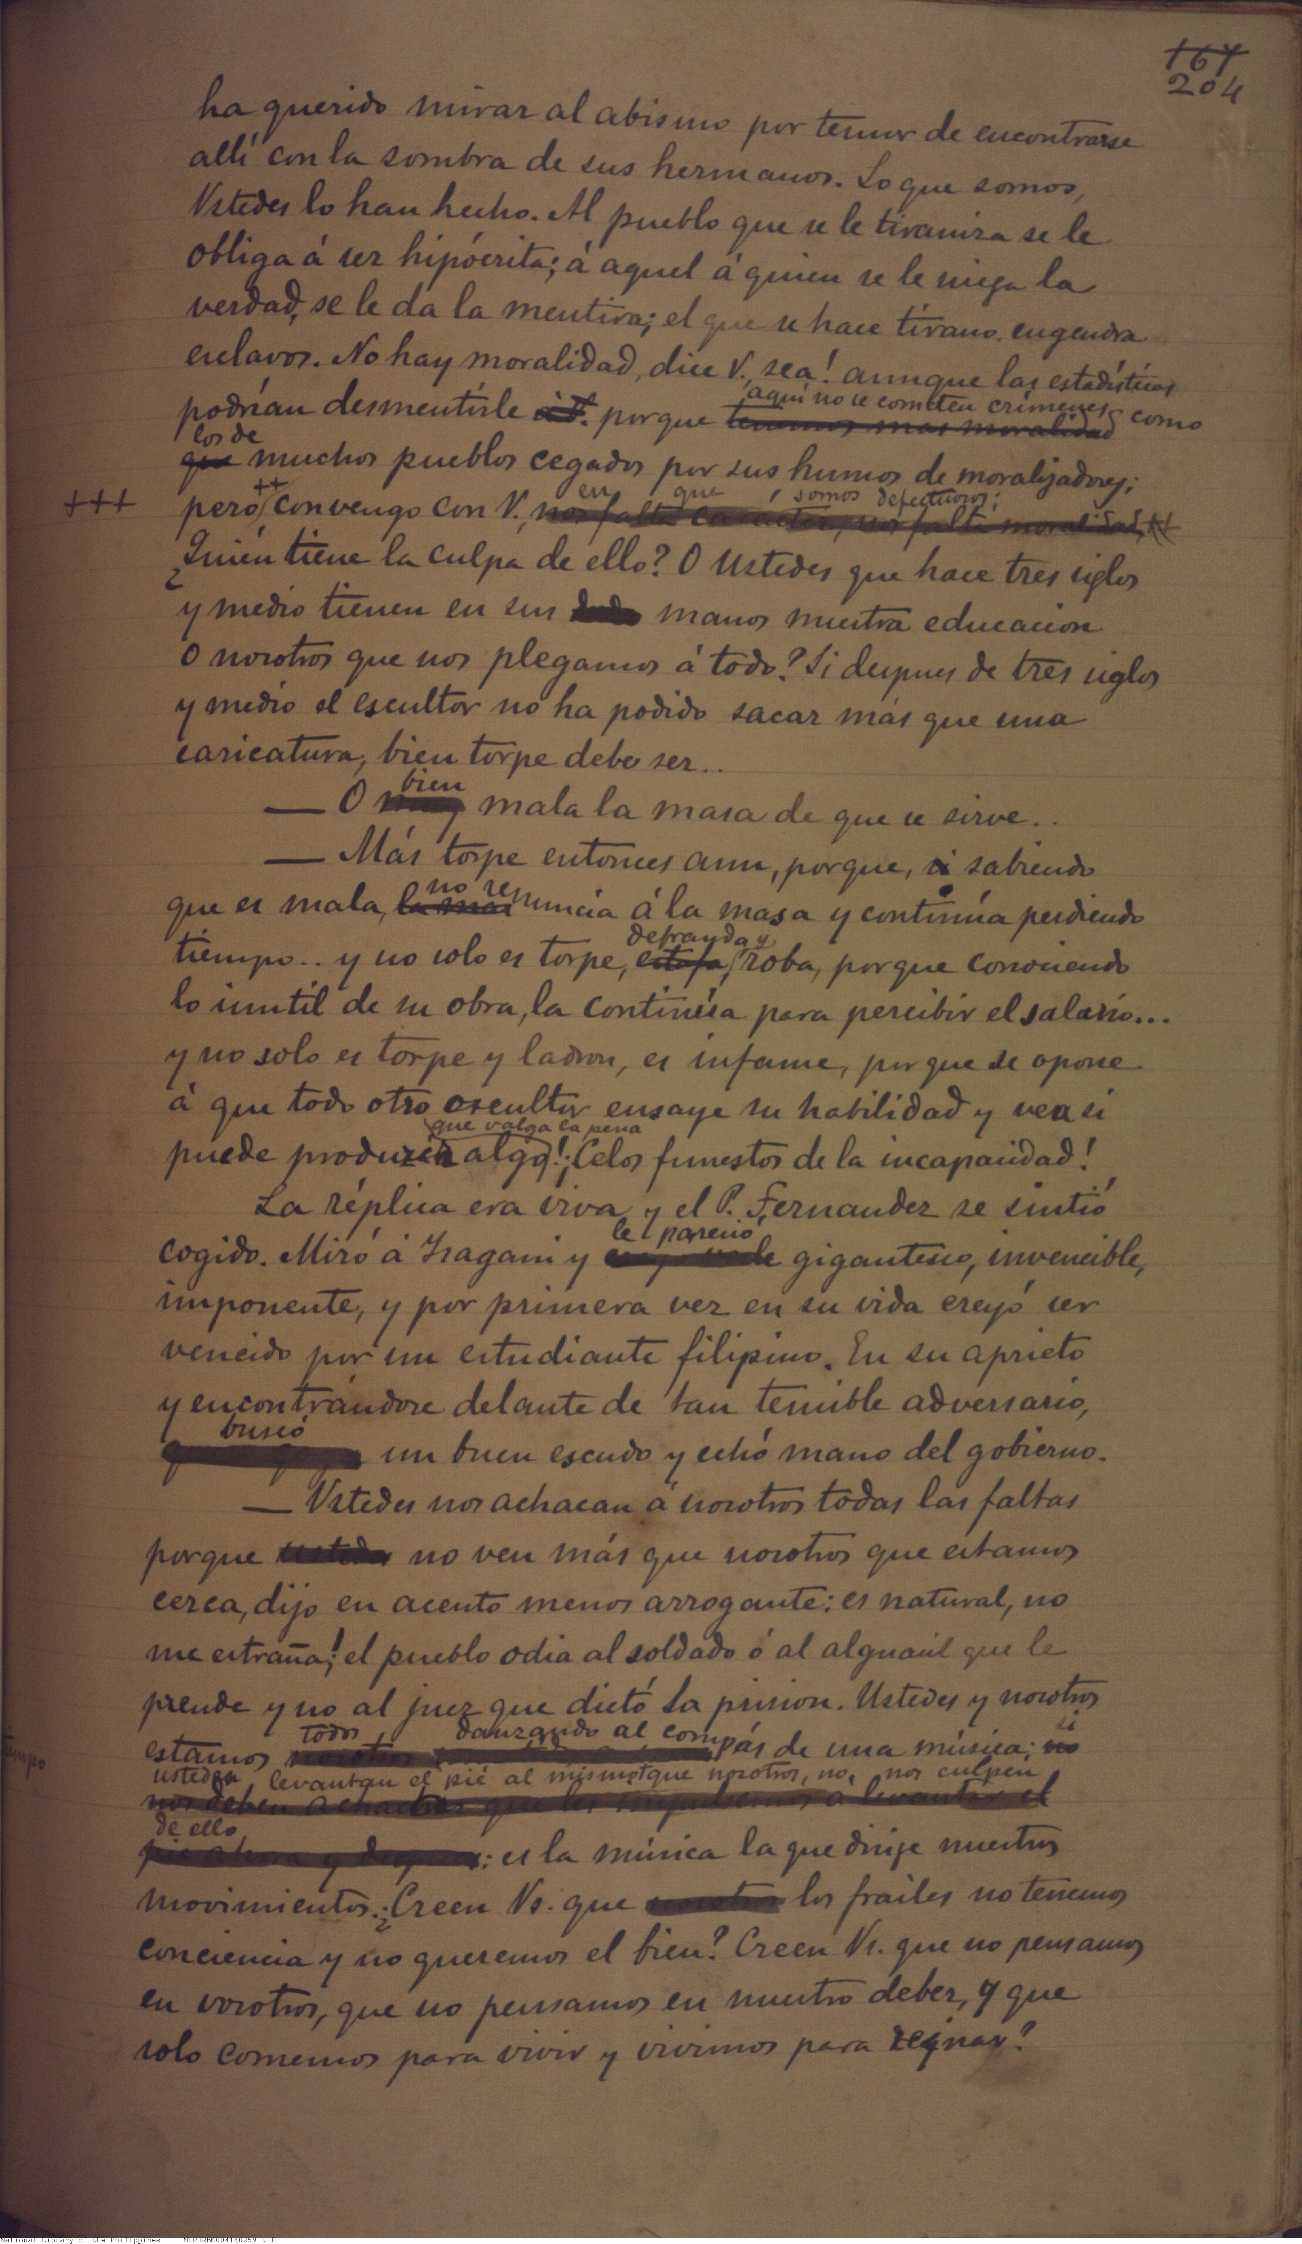 167
204
ha querido mirar al abismo por temor de encontrarse
allí con la sombra de sus hermanos. Lo que somos,
Vstedes lo han hecho. Al pueblo que se le tiraniza se le
obliga á ser hipócrita; á aquel á quien se le niega la
verdad, se le da la mentira; el que se hace tirano, engendra
esclavos. No hay moralidad, dice V., sea! aunque las estadísticas
aquí no se cometen crímenes
podrían desmentirle porque tenemos mas moralidad como
los de
que muchos pueblos cegados por sus humos de moralizadores;
en que somos defectuosos;
+++ pero ++ convengo con V., nos falta caracter, nos falta moralidad, ++
¿Quién tiene la culpa de ello? O Ustedes que hace tres siglos
y medio tienen en sus manos nuestra educacion
o nosotros que nos plegamos á todo? Si despues de tres siglos
y medio el escultor no ha podido sacar más que una
caricatura, bien torpe debe ser..
bien
— O muy mala la masa de que se sirve..
— Más torpe entonces aun, porque, si sabiendo
no re
que es mala, la mas nuncia á la masa y continúa perdiendo
defrauda y
tiempo.. y no solo es torpe, estafa, roba, porque conociendo
lo inutil de su obra, la continúa para percibir el salario...
y no solo es torpe y ladron, es infame, porque se opone
á que todo otro escultor ensaye su habilidad y vea si
que valga la pena
puede producir algo! ¡Celos funestos de la incapacidad!
La réplica era viva y el P. Fernandez se sintió
le pareció
cogido. Miró á Isagani y gigantesco, invencible,
imponente, y por primera vez en su vida creyó ser
vencido por un estudiante filipino. En su aprieto
y encontrándose delante de tan temible adversario,
buscó
un buen escudo y echó mano del gobierno.
— Vstedes nos achacan á nosotros todas las faltas
porque ustedes no ven más que nosotros que estamos
cerca, dijo en acento menos arrogante: es natural, no
me estraña! el pueblo odia al soldado ó al alguacil que le
prende y no al juez que dictó la prision. Ustedes y nosotros
todos danzando al compás si
estamos nosotros de una música; no
ustedes levantan el pié al mismo tiempo que nosotros, no nos culpen
nos deben achacar que les impulsemos a levantar el
de ello
pie ahora y despues; es la música la que dirije nuestros
movimientos. ¿Creen Vs. que nosotros los frailes no tenemos
conciencia y no queremos el bien? Creen Vs. que no pensamos
en vosotros, que no pensamos en nuestro deber, y que
solo comemos para vivir y vivimos para reinar?